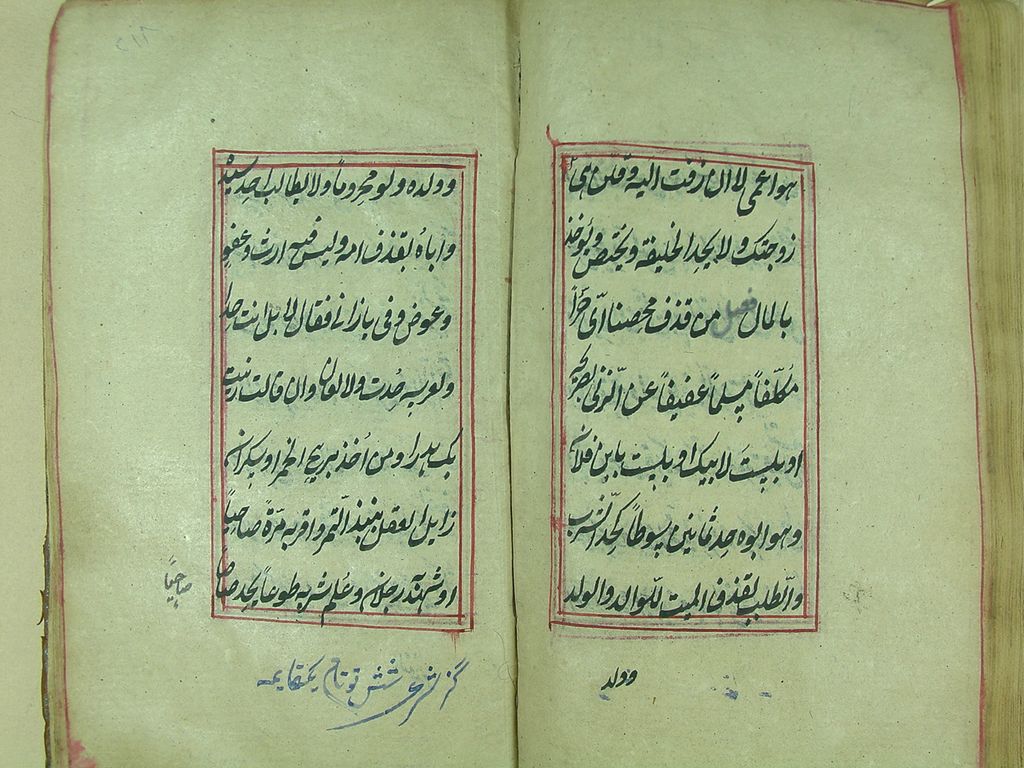 هو اعمى لا ان زفت اليه و قلن هى
زوجتك ولا يحد الخليفة ويقتص ويؤخذ
بالمال فصل من قذف محصنا اى حراً
مكلّفاً مسلماً عفيفاً عن الزنى بصريحه
او بلست لابيك او بلست بابن فلان
وهو ابوه حد ثمانين سوطاً كحد الشرب
والطلب بقذف الميت للوالد والولد
وولد
وولده ولو محروماً ولا يطالب احد سيده
واباهُ بقذف امه وليس فيه ارث وعفو
وعوض وفى يا زانى فقال لا بل انت حدا
ولعرسه حدت ولا لعان وان قالت زنيت
بك هدرا ومن اُخذ بريح الخمر او سكران
زايل العقل بنبيذ التمر واقر به مرّة صاحياً
او شهد به رجلان وعلم شربه طوعاً يحد صاحيا
صاحياً